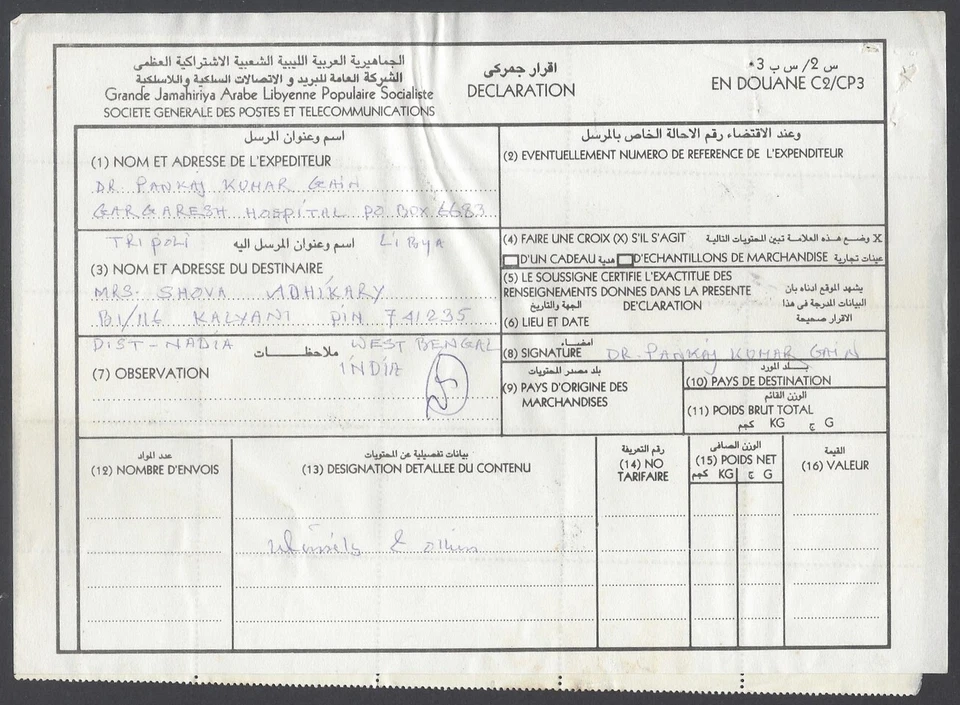 الجماهيرية العربية الليبية الشعبية الاشتراكية العظمى
الشركة العامة للبريد والاتصالات السلكية واللاسلكية
Grande Jamahiriya Arabe Libyenne Populaire Socialiste
SOCIETE GENERALE DES POSTES ET TELECOMMUNICATIONS
اقرار جمركى
DECLARATION
س 2/ س ب 3
EN DOUANE C2/CP3
اسم وعنوان المرسل
(1) NOM ET ADRESSE DE L'EXPEDITEUR
DR. PANKAJ KUMAR GAIN
GARGARESH HOSPITAL PO BOX 6683
TRIPOLI LIBYA
وعند الاقتضاء رقم الاحالة الخاص بالمرسل
(2) EVENTUELLEMENT NUMERO DE REFERENCE DE L'EXPENDITEUR
اسم وعنوان المرسل اليه
(3) NOM ET ADRESSE DU DESTINAIRE
MRS. SHOVA ADHIKARY
B1/116 KALYANI PIN 741235
DIST-NADIA WEST BENGAL
INDIA
(4) FAIRE UNE CROIX (X) S'IL S'AGIT وضع هذه العلامة تبين المحتويات التالية X
D'UN CADEAU هدية D'ECHANTILLONS DE MARCHANDISE عينات تجارية
(5) LE SOUSSIGNE CERTIFIE L'EXACTITUDE DES
RENSEIGNEMENTS DONNES DANS LA PRESENTE
DE'CLARATION
يشهد الموقع ادناه بان
البيانات المدرجة فى هذا
الاقرار صحيحة
الجهة والتاريخ
(6) LIEU ET DATE
ملاحظات
(7) OBSERVATION
امضاء
(8) SIGNATURE DR. PANKAJ KUMAR GAIN
بلد مصدر المحتويات
(9) PAYS D'ORIGINE DES
MARCHANDISES
بلد المورد
(10) PAYS DE DESTINATION
الوزن القائم
(11) POIDS BRUT TOTAL
كجم KG ج G
عدد المواد
(12) NOMBRE D'ENVOIS
بيانات تفصيلية عن المحتويات
(13) DESIGNATION DETALLEE DU CONTENU
رقم التعريفة
(14) NO
TARIFAIRE
الوزن الصافى
(15) POIDS NET
كجم KG ج G
القيمة
(16) VALEUR